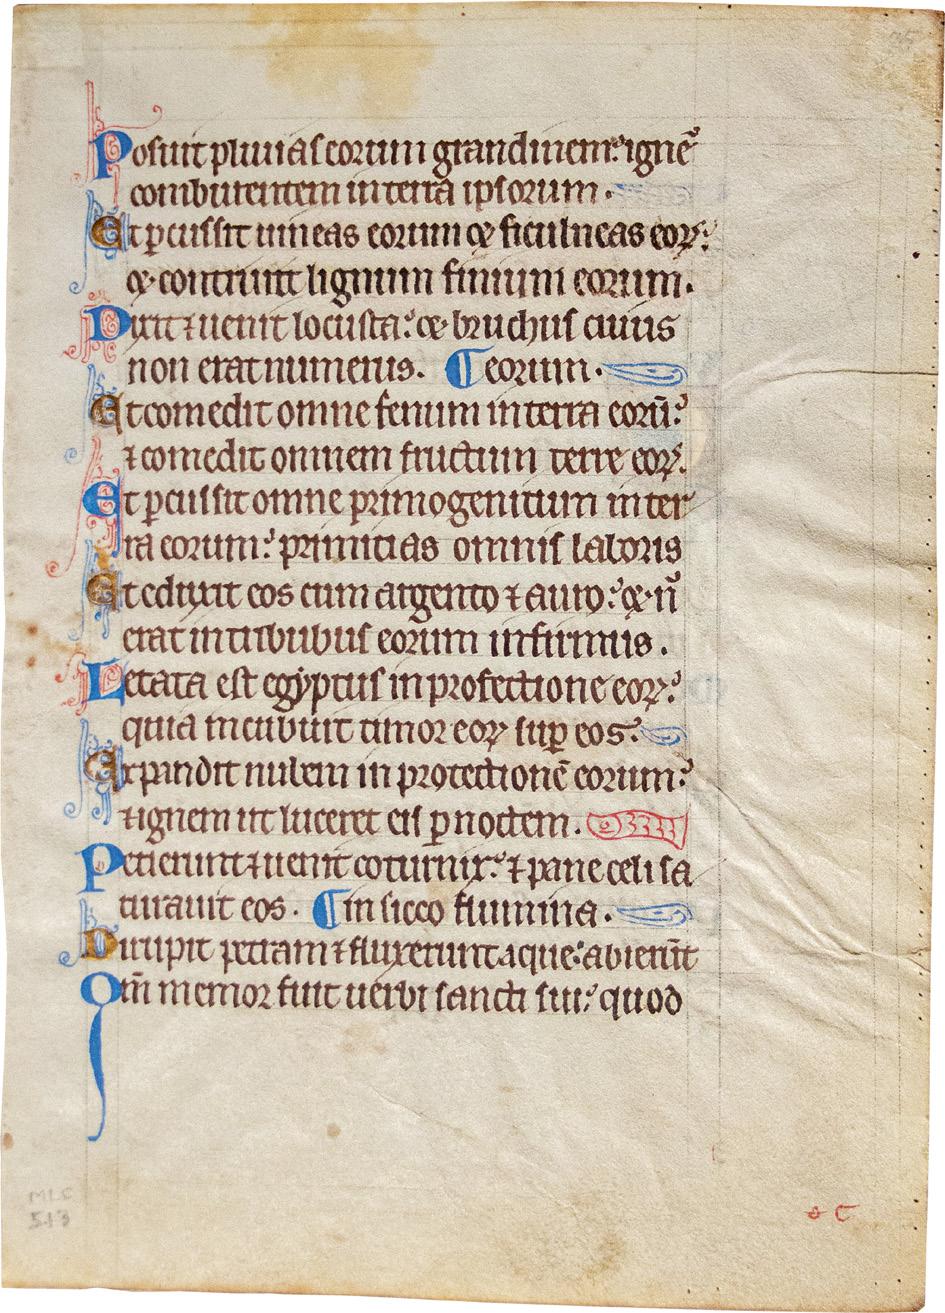 Posuit pluuias eorum grandinem: ignē
comburentem in terra ipsorum.
Et ꝑcussit uineas eorum ⁊ ficulneas eoꝝ:
⁊ contriuit lignum finium eorum.
Dixit ⁊ uenit locusta: ⁊ bruchus cuius
non erat numerus. ¶ eorum.
Et comedit omne fenum in terra eorū:
⁊ comedit omnem fructum terre eoꝝ.
Et ꝑcussit omne primogenitum in ter
ra eorum: primitias omnis laboris
Et eduxit eos cum argento ⁊ auro: ⁊ nō
erat in tribubus eorum infirmus.
Letata est egyptus in profectione eoꝝ:
quia incubuit timor eoꝝ suꝑ eos.
Expandit nubem in protectionē eorum:
⁊ ignem ut luceret eis ꝑ noctem.
Petierunt ⁊ uenit coturnix: ⁊ pane celi sa
turauit eos. ¶ in sicco flumina.
Dirupit petram ⁊ fluxerunt aque: abierūt
Qm̄ memor fuit uerbi sancti sui: quod
MLC
513